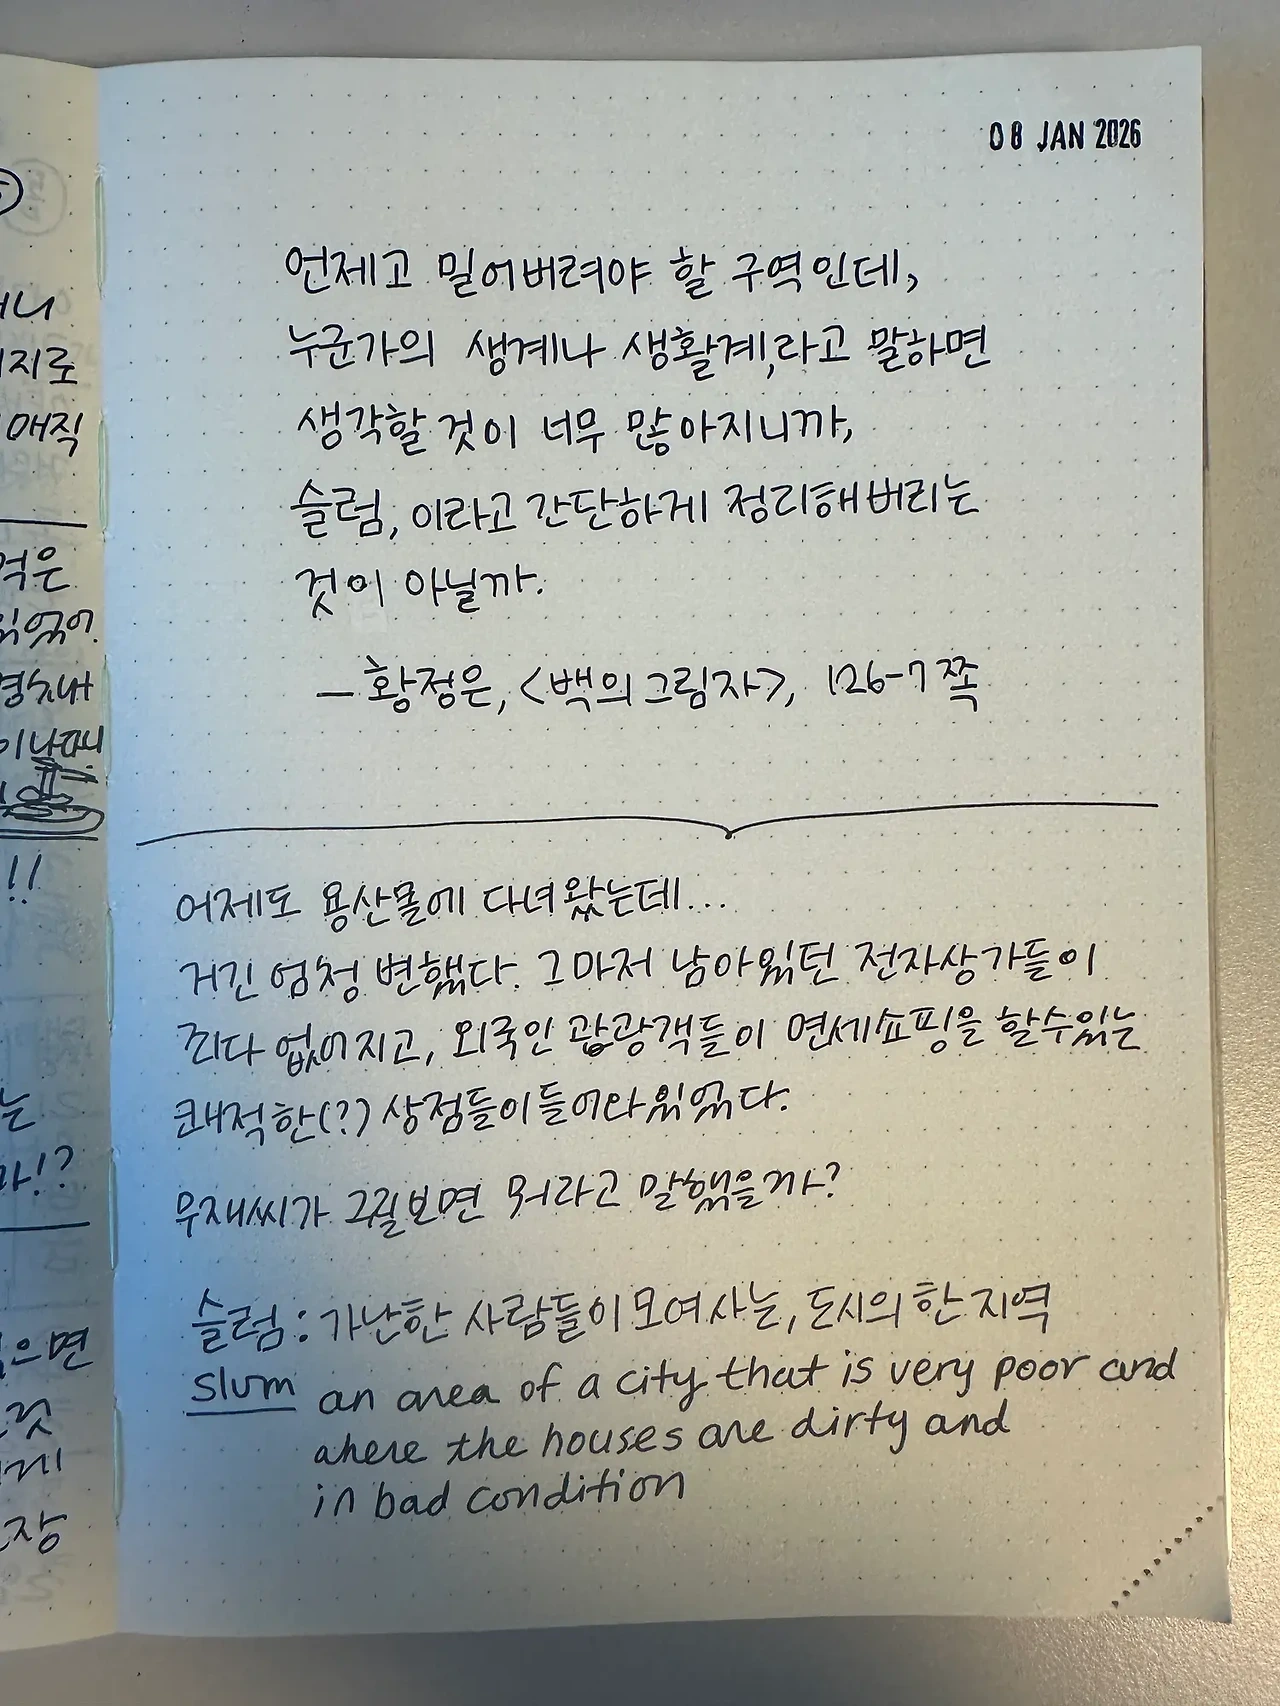 08 JAN 2026
언제고 밀어버려야 할 구역인데,
누군가의 생계나 생활계,라고 말하면
생각할 것이 너무 많아지니까,
슬럼, 이라고 간단하게 정리해버리는
것이 아닐까.
— 황정은, <백의 그림자>, 126-7쪽
어제도 용산몰에 다녀왔는데...
거긴 엄청 변했다. 그마저 남아있던 전자상가들이
죄다 없어지고, 외국인 관광객들이 면세쇼핑을 할 수 있는
쾌적한(?) 상점들이 들어와 있었다.
무재씨가 그걸 보면 뭐라고 말했을까?
슬럼 : 가난한 사람들이 모여 사는, 도시의 한 지역
slum an area of a city that is very poor and
where the houses are dirty and
in bad condition
어니
지로
매직
먹은
읽었어.
!!
는
까!?
으면
것
게
장